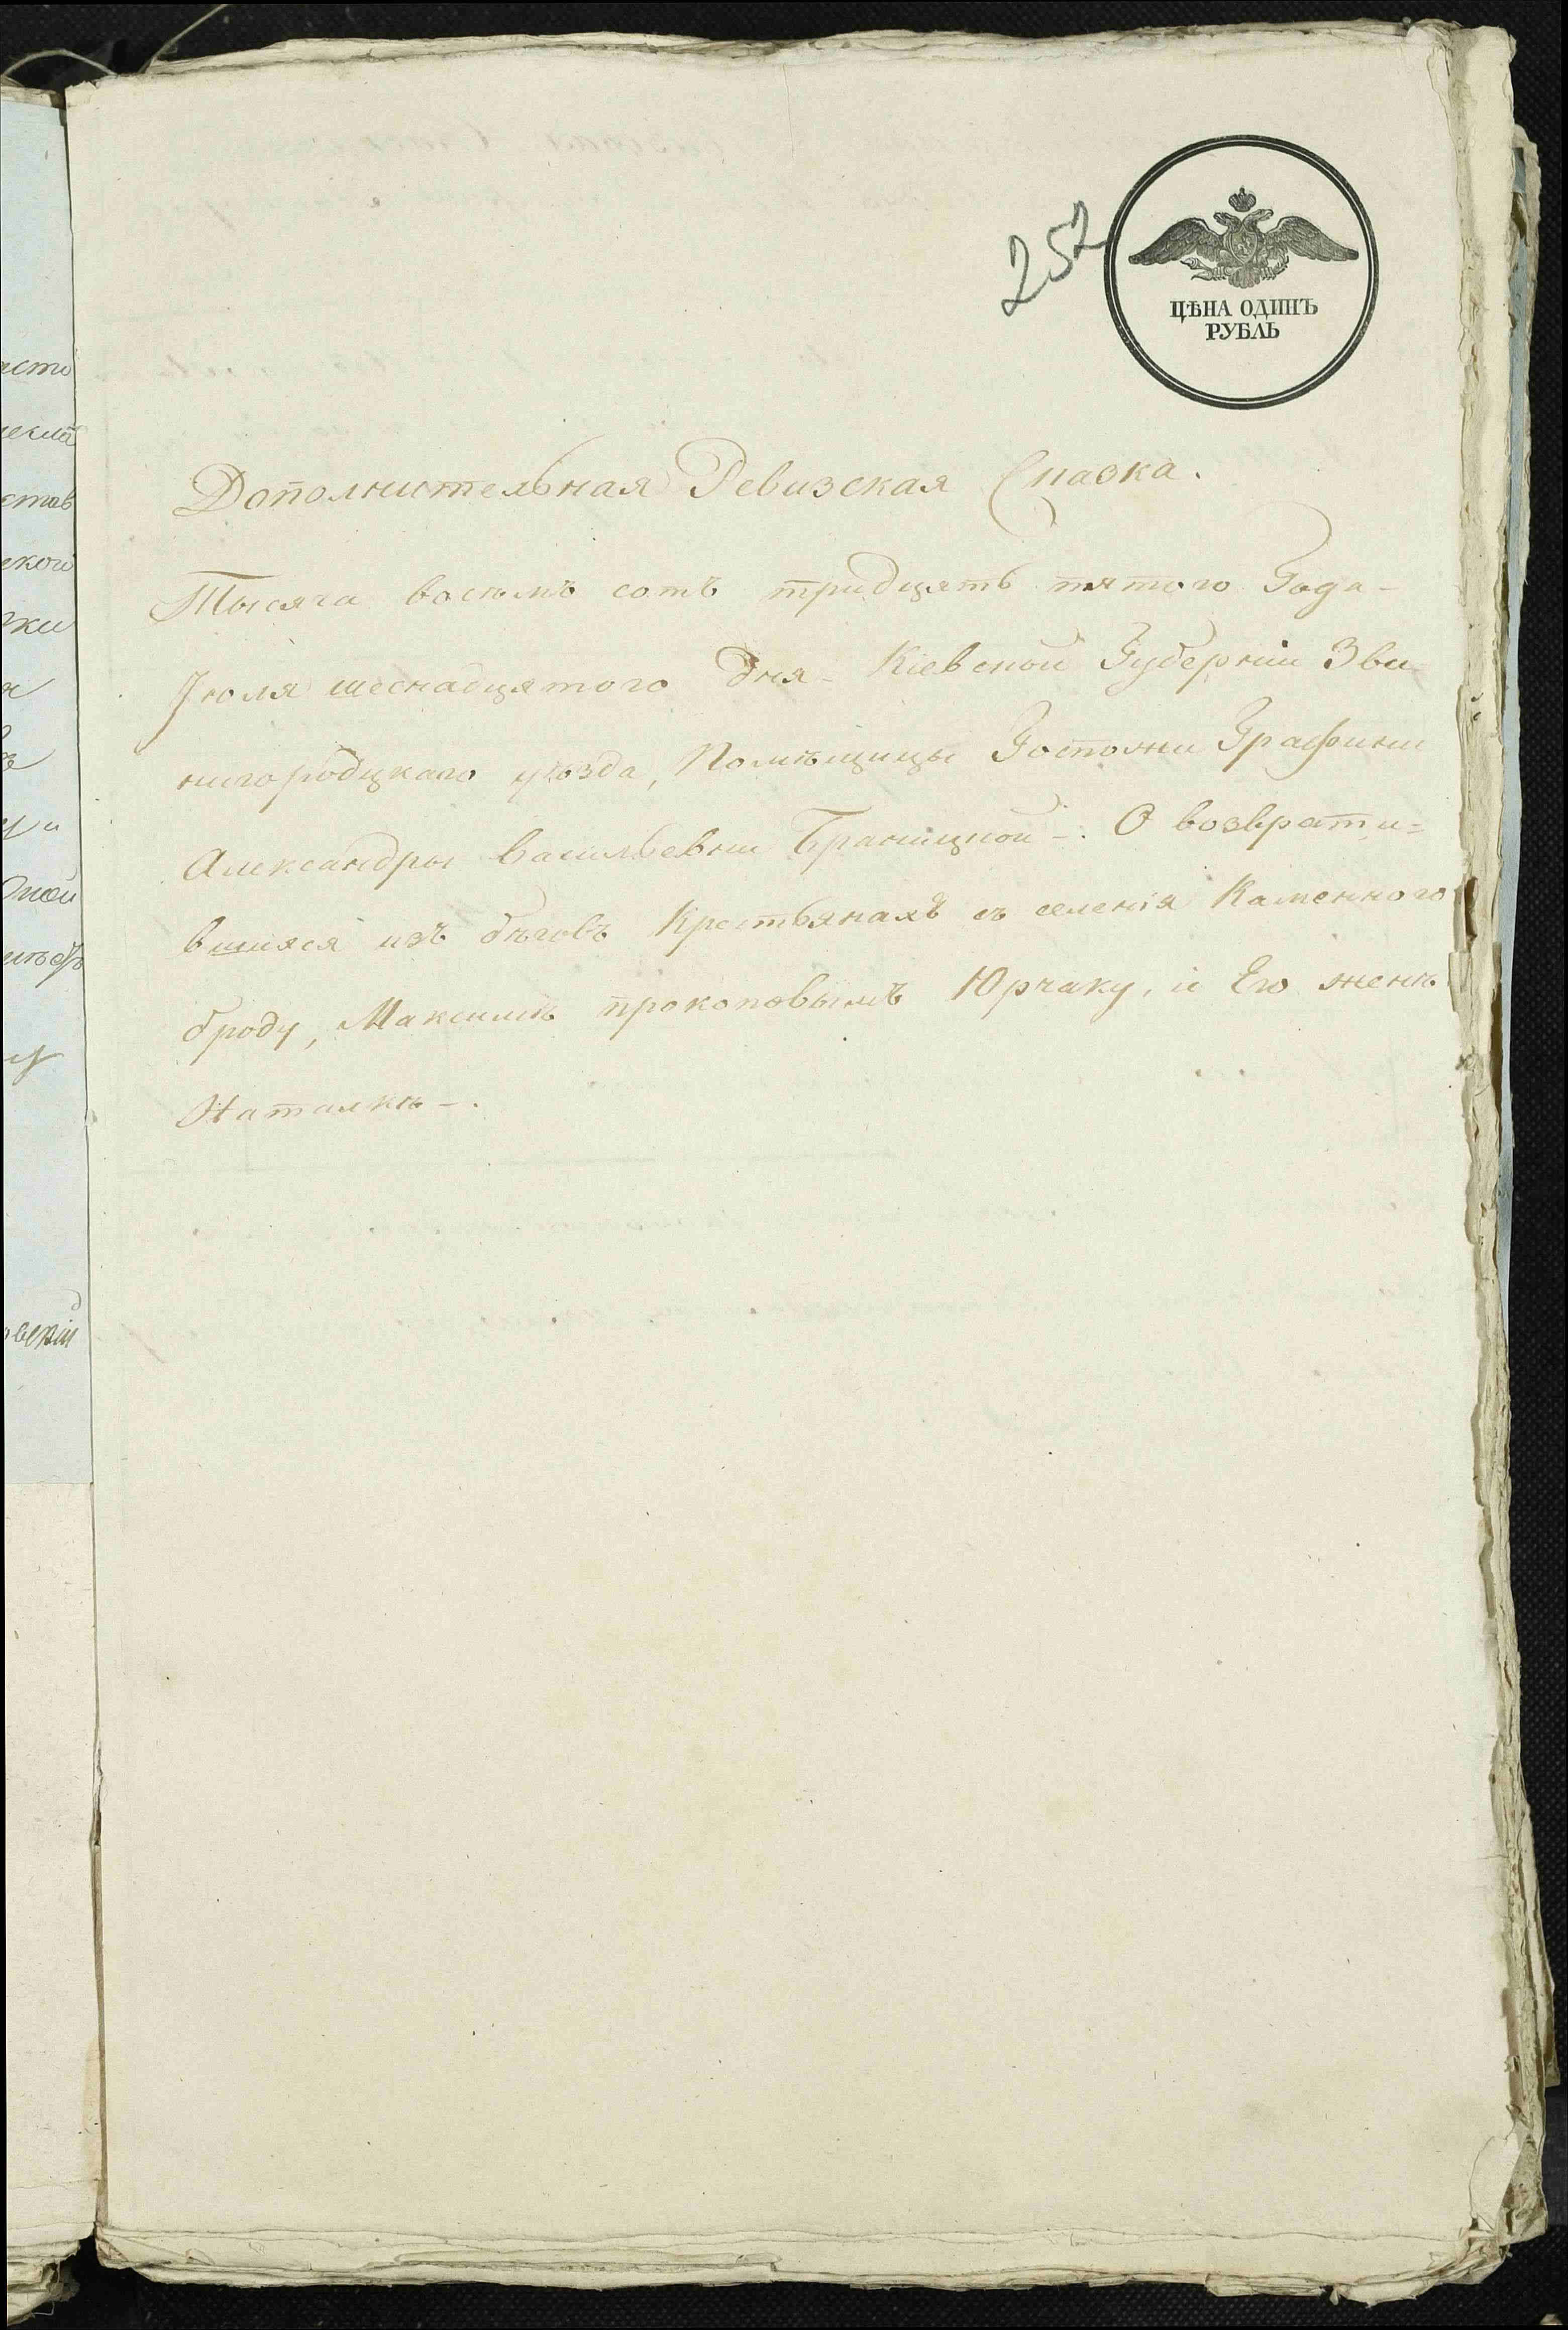 252
ЦѢНА ОДИНЪ
РУБЛЬ
Дополнительная Ревизская Сказка.
Тысяча восемъ сотъ тридцять пятого Года-
Іюля шеснадцятого Дня- Кіевской Губерніи Зви
нигородцкаго уѣзда, Помѣщицы Госпожи Графини
Александры Васильевни Браницкой-. О возврати=
вшихся изъ бѣговъ Крестьянахъ съ селенія Каменного
броду, Максимѣ прокоповымъ Юрчаку, и Его женѣ
Наталкѣ-.